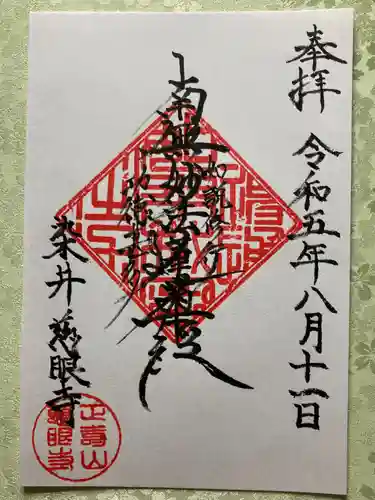 奉拝
令和五年八月十一日
如説修行
南無妙法蓮華経
功徳甚多
染井慈眼寺
正寿山
慈眼寺